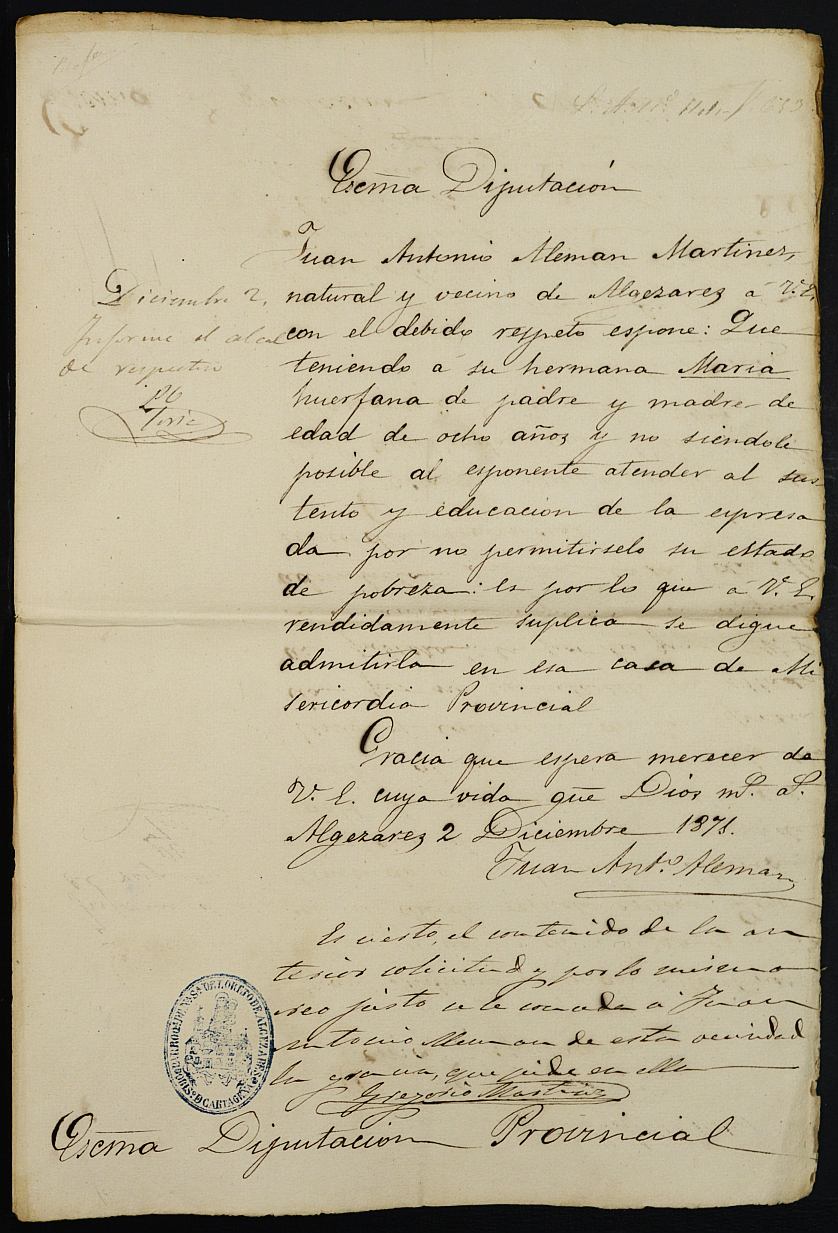 Escma Diputación
Juan Antonio Aleman Martinez,
natural y vecino de Algezares á V. E.
con el debido respeto espone: Que
teniendo á su hermana Maria
huerfana de padre y madre de
edad de ocho años y no siendole
posible al esponente atender al sus
tento y educacion de la espresa
da por no permitirselo su estado
de pobreza: es por lo que á V. E.
rendidamente suplica se digne
admitirla en esa casa de Mi
sericordia Provincial
Gracia que espera merecer de
V. E. cuya vida gue Dios ms. as.
Algezares 2 Diciembre 1871.
Juan Anto. Aleman
Diciembre 2.
Informe el alcal
de respectivo
Es cierto, el contenido de la an
terior solicitud y por lo mismo
creo justo se le conceda á Juan
Antonio Aleman de esta vecindad
la gracia, que pide en ella
Gregorio Martinez
PARROQA. DE NA. SA. DEL LORETO DE ALGEZARES
OBISPO. D CARTAGENA
Escma Diputacion Provincial